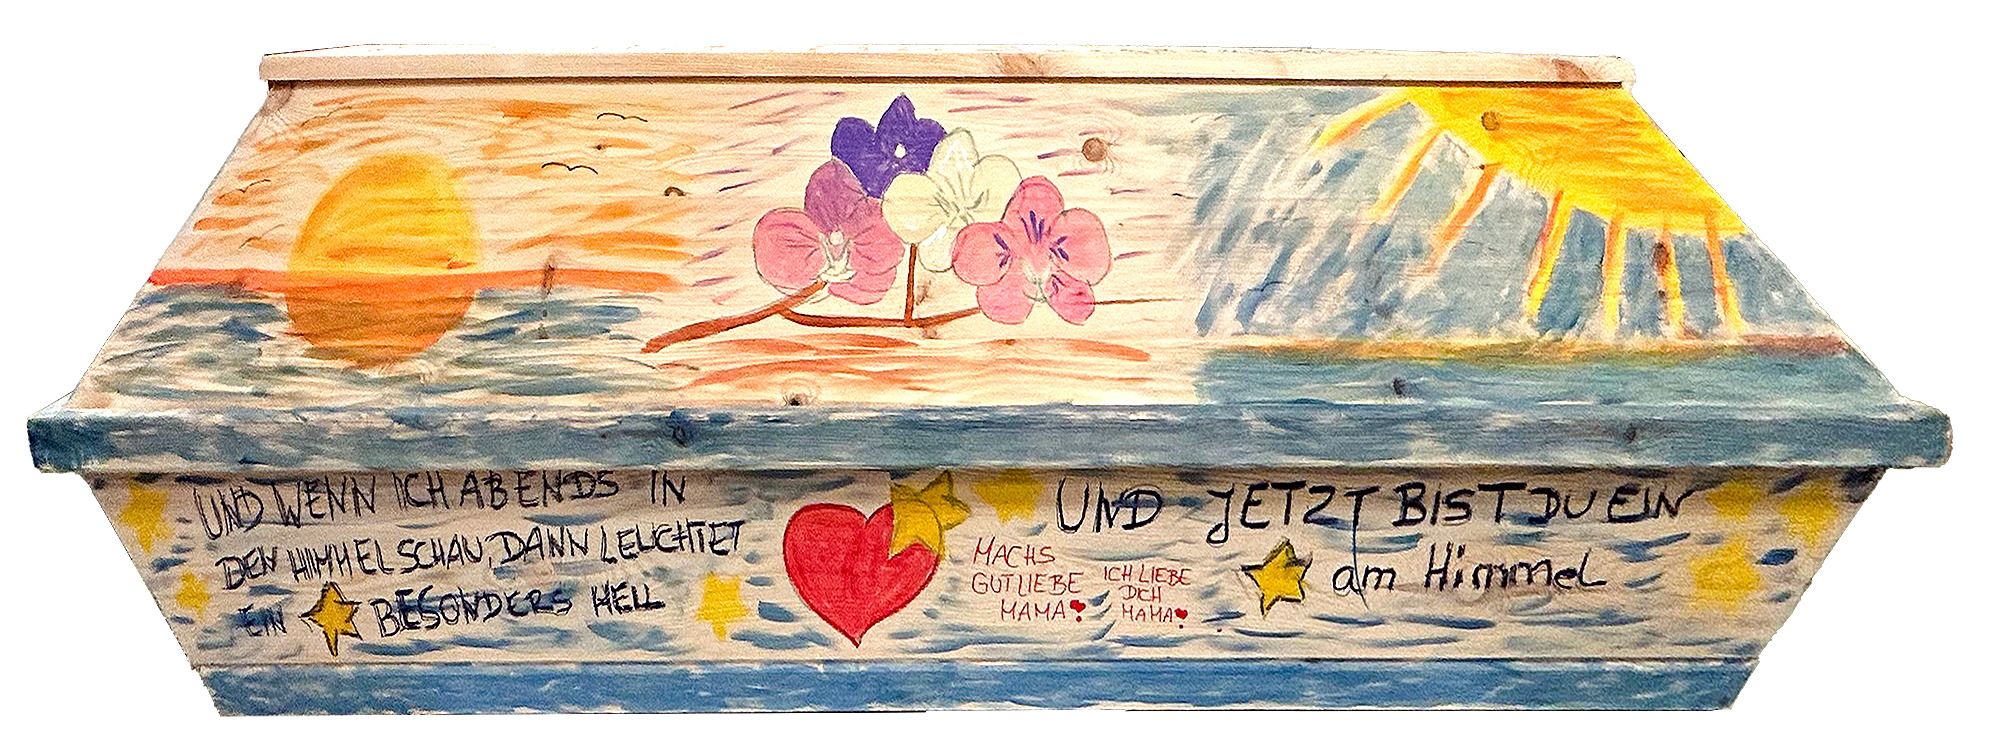 UND WENN ICH ABENDS IN
DEN HIMMEL SCHAU, DANN LEUCHTET
EIN BESONDERS HELL
UND JETZT BIST DU EIN
am Himmel
MACHS
GUT LIEBE
MAMA
ICH LIEBE
DICH
MAMA